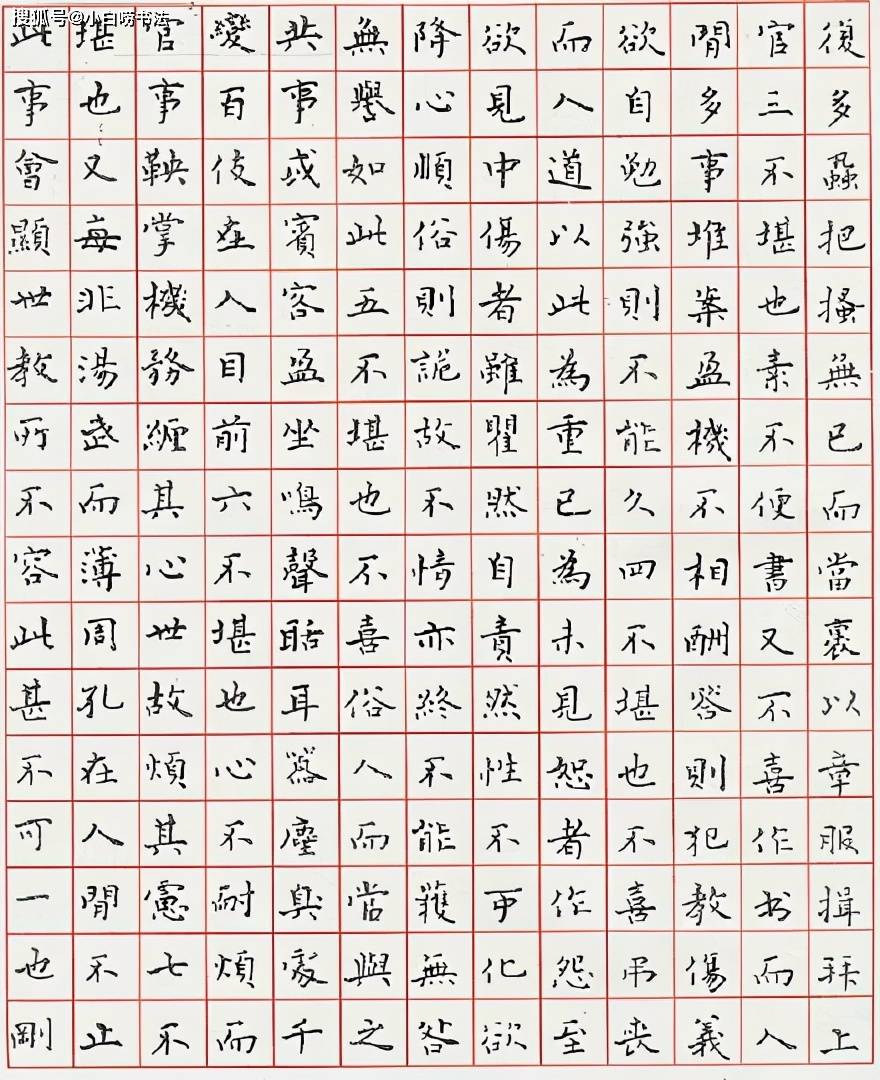 搜狐号@小白唠书法
復多蝨把搔無已而當裹以章服揖拜上
官三不堪也素不便書又不喜作书而人
閒多事堆案盈機不相酬答則犯教傷義
欲自勉強則不能久四不堪也不喜弔喪
而人道以此為重已為未見恕者作怨至
欲見中傷者雖瞿然自責然性不可化欲
降心順俗則詭故不情亦終不能獲無咎
無譽如此五不堪也不喜俗人而當與之
共事或賓客盈坐鳴聲聒耳囂塵臭處千
變百伎在人目前六不堪也心不耐煩而
官事鞅掌機務纏其心世故煩其慮七不
堪也又每非湯武而薄周孔在人閒不止
此事會顯世教所不容此甚不可一也剛